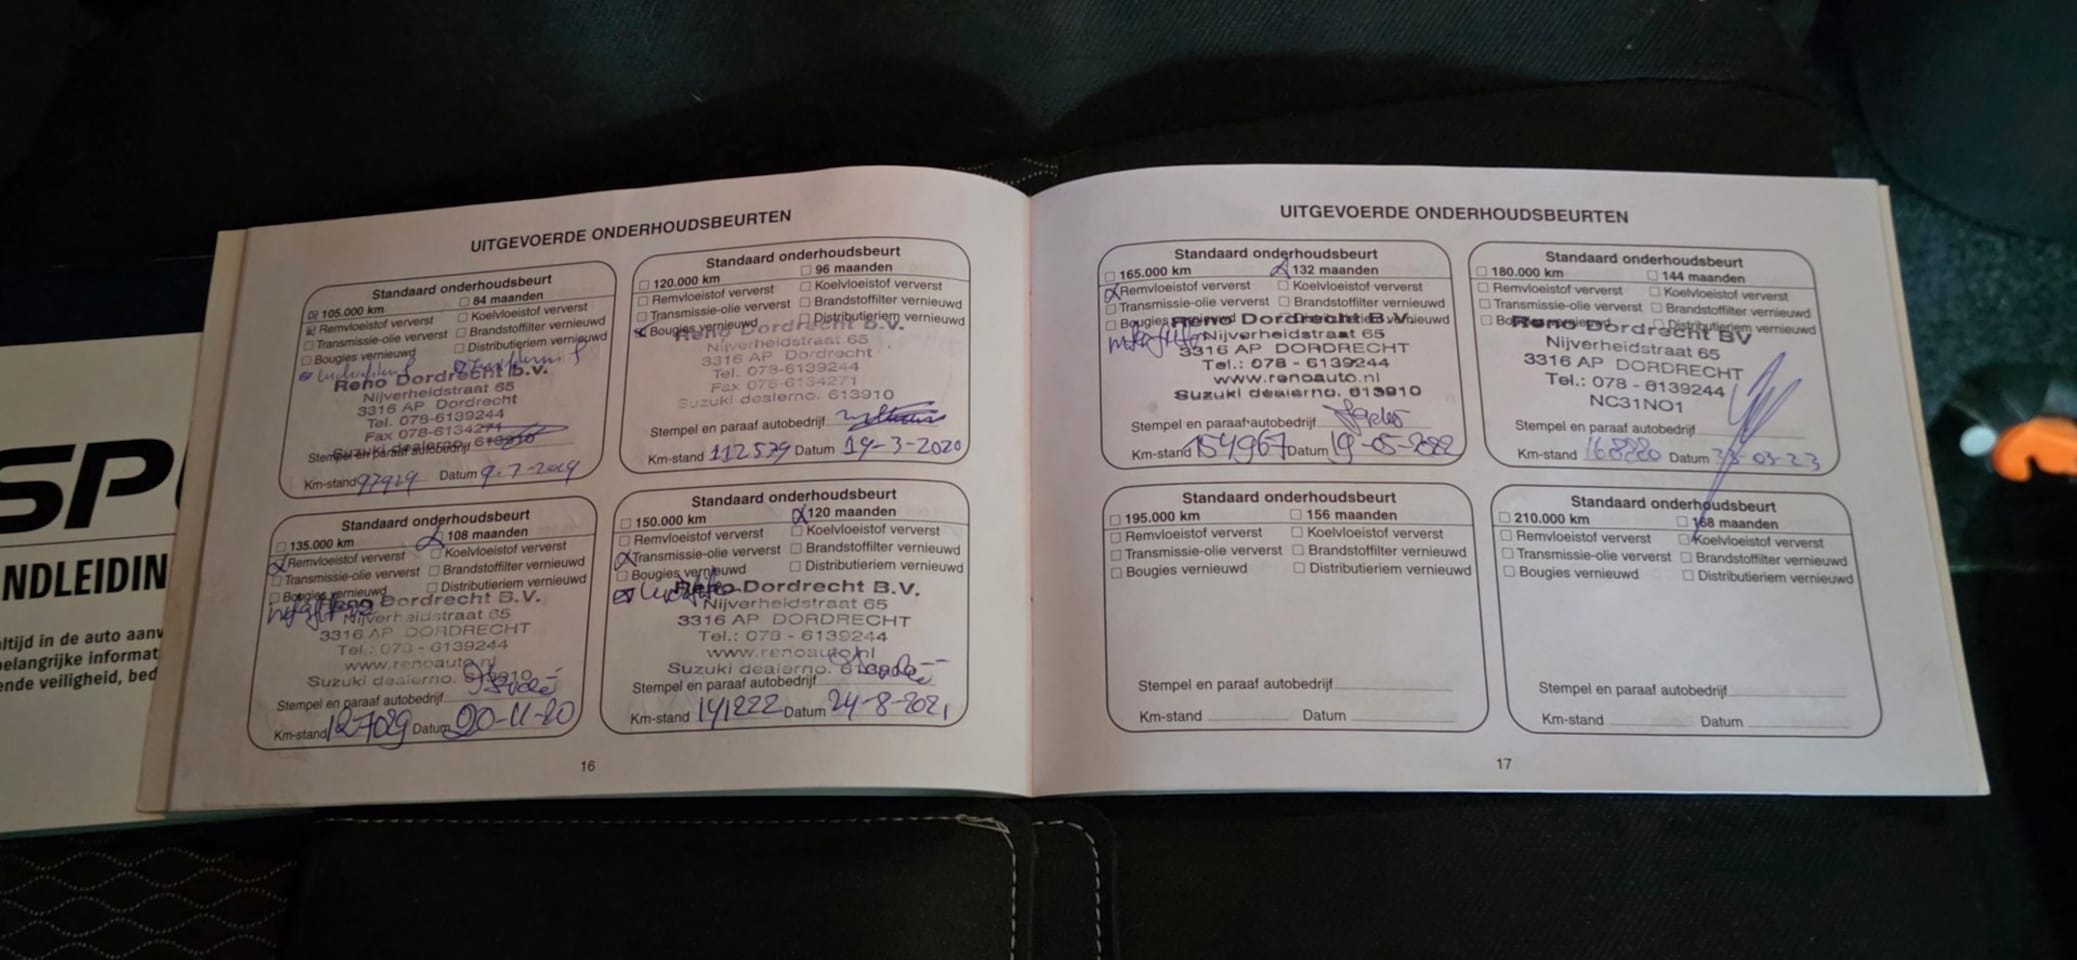 SP
NDLEIDIN
ltijd in de auto aanv
elangrijke informat
ende veiligheid, bed
UITGEVOERDE ONDERHOUDSBEURTEN
Standaard onderhoudsbeurt
105.000 km 84 maanden
Remvloeistof ververst Koelvloeistof ververst
Transmissie-olie ververst Brandstoffilter vernieuwd
Bougies vernieuwd Distributieriem vernieuwd
Reno Dordrecht b.v.
Nijverheidstraat 65
3316 AP Dordrecht
Tel. 078-6139244
Fax 078-6134271
Suzuki dealerno. 613910
Stempel en paraaf autobedrijf
Km-stand 97929 Datum 9-7-2019
Standaard onderhoudsbeurt
120.000 km 96 maanden
Remvloeistof ververst Koelvloeistof ververst
Transmissie-olie ververst Brandstoffilter vernieuwd
Bougies vernieuwd Distributieriem vernieuwd
Reno Dordrecht B.V.
Nijverheidstraat 65
3316 AP Dordrecht
Tel. 078-6139244
Fax 078-6134271
Suzuki dealerno. 613910
Stempel en paraaf autobedrijf
Km-stand 112579 Datum 19-3-2020
Standaard onderhoudsbeurt
135.000 km 108 maanden
Remvloeistof ververst Koelvloeistof ververst
Transmissie-olie ververst Brandstoffilter vernieuwd
Bougies vernieuwd Distributieriem vernieuwd
Reno Dordrecht B.V.
Nijverheidstraat 65
3316 AP DORDRECHT
Tel.: 078 - 6139244
www.renoauto.nl
Suzuki dealerno. 613910
Stempel en paraaf autobedrijf
Km-stand 127029 Datum 20-11-20
Standaard onderhoudsbeurt
150.000 km 120 maanden
Remvloeistof ververst Koelvloeistof ververst
Transmissie-olie ververst Brandstoffilter vernieuwd
Bougies vernieuwd Distributieriem vernieuwd
Reno Dordrecht B.V.
Nijverheidstraat 65
3316 AP DORDRECHT
Tel.: 078 - 6139244
www.renoauto.nl
Suzuki dealerno.
Stempel en paraaf autobedrijf
Km-stand 141222 Datum 24-8-2021
16
UITGEVOERDE ONDERHOUDSBEURTEN
Standaard onderhoudsbeurt
165.000 km 132 maanden
Remvloeistof ververst Koelvloeistof ververst
Transmissie-olie ververst Brandstoffilter vernieuwd
Bougies vernieuwd Distributieriem vernieuwd
Reno Dordrecht B.V.
Nijverheidstraat 65
3316 AP DORDRECHT
Tel.: 078 - 6139244
www.renoauto.nl
Suzuki dealerno. 613910
Stempel en paraaf autobedrijf
Km-stand 154967 Datum 19-05-2022
Standaard onderhoudsbeurt
180.000 km 144 maanden
Remvloeistof ververst Koelvloeistof ververst
Transmissie-olie ververst Brandstoffilter vernieuwd
Bougies vernieuwd Distributieriem vernieuwd
Reno Dordrecht BV
Nijverheidstraat 65
3316 AP DORDRECHT
Tel.: 078 - 6139244
NC31NO1
Stempel en paraaf autobedrijf
Km-stand 168220 Datum 03-23
Standaard onderhoudsbeurt
195.000 km 156 maanden
Remvloeistof ververst Koelvloeistof ververst
Transmissie-olie ververst Brandstoffilter vernieuwd
Bougies vernieuwd Distributieriem vernieuwd
Stempel en paraaf autobedrijf
Km-stand Datum
Standaard onderhoudsbeurt
210.000 km 168 maanden
Remvloeistof ververst Koelvloeistof ververst
Transmissie-olie ververst Brandstoffilter vernieuwd
Bougies vernieuwd Distributieriem vernieuwd
Stempel en paraaf autobedrijf
Km-stand Datum
17